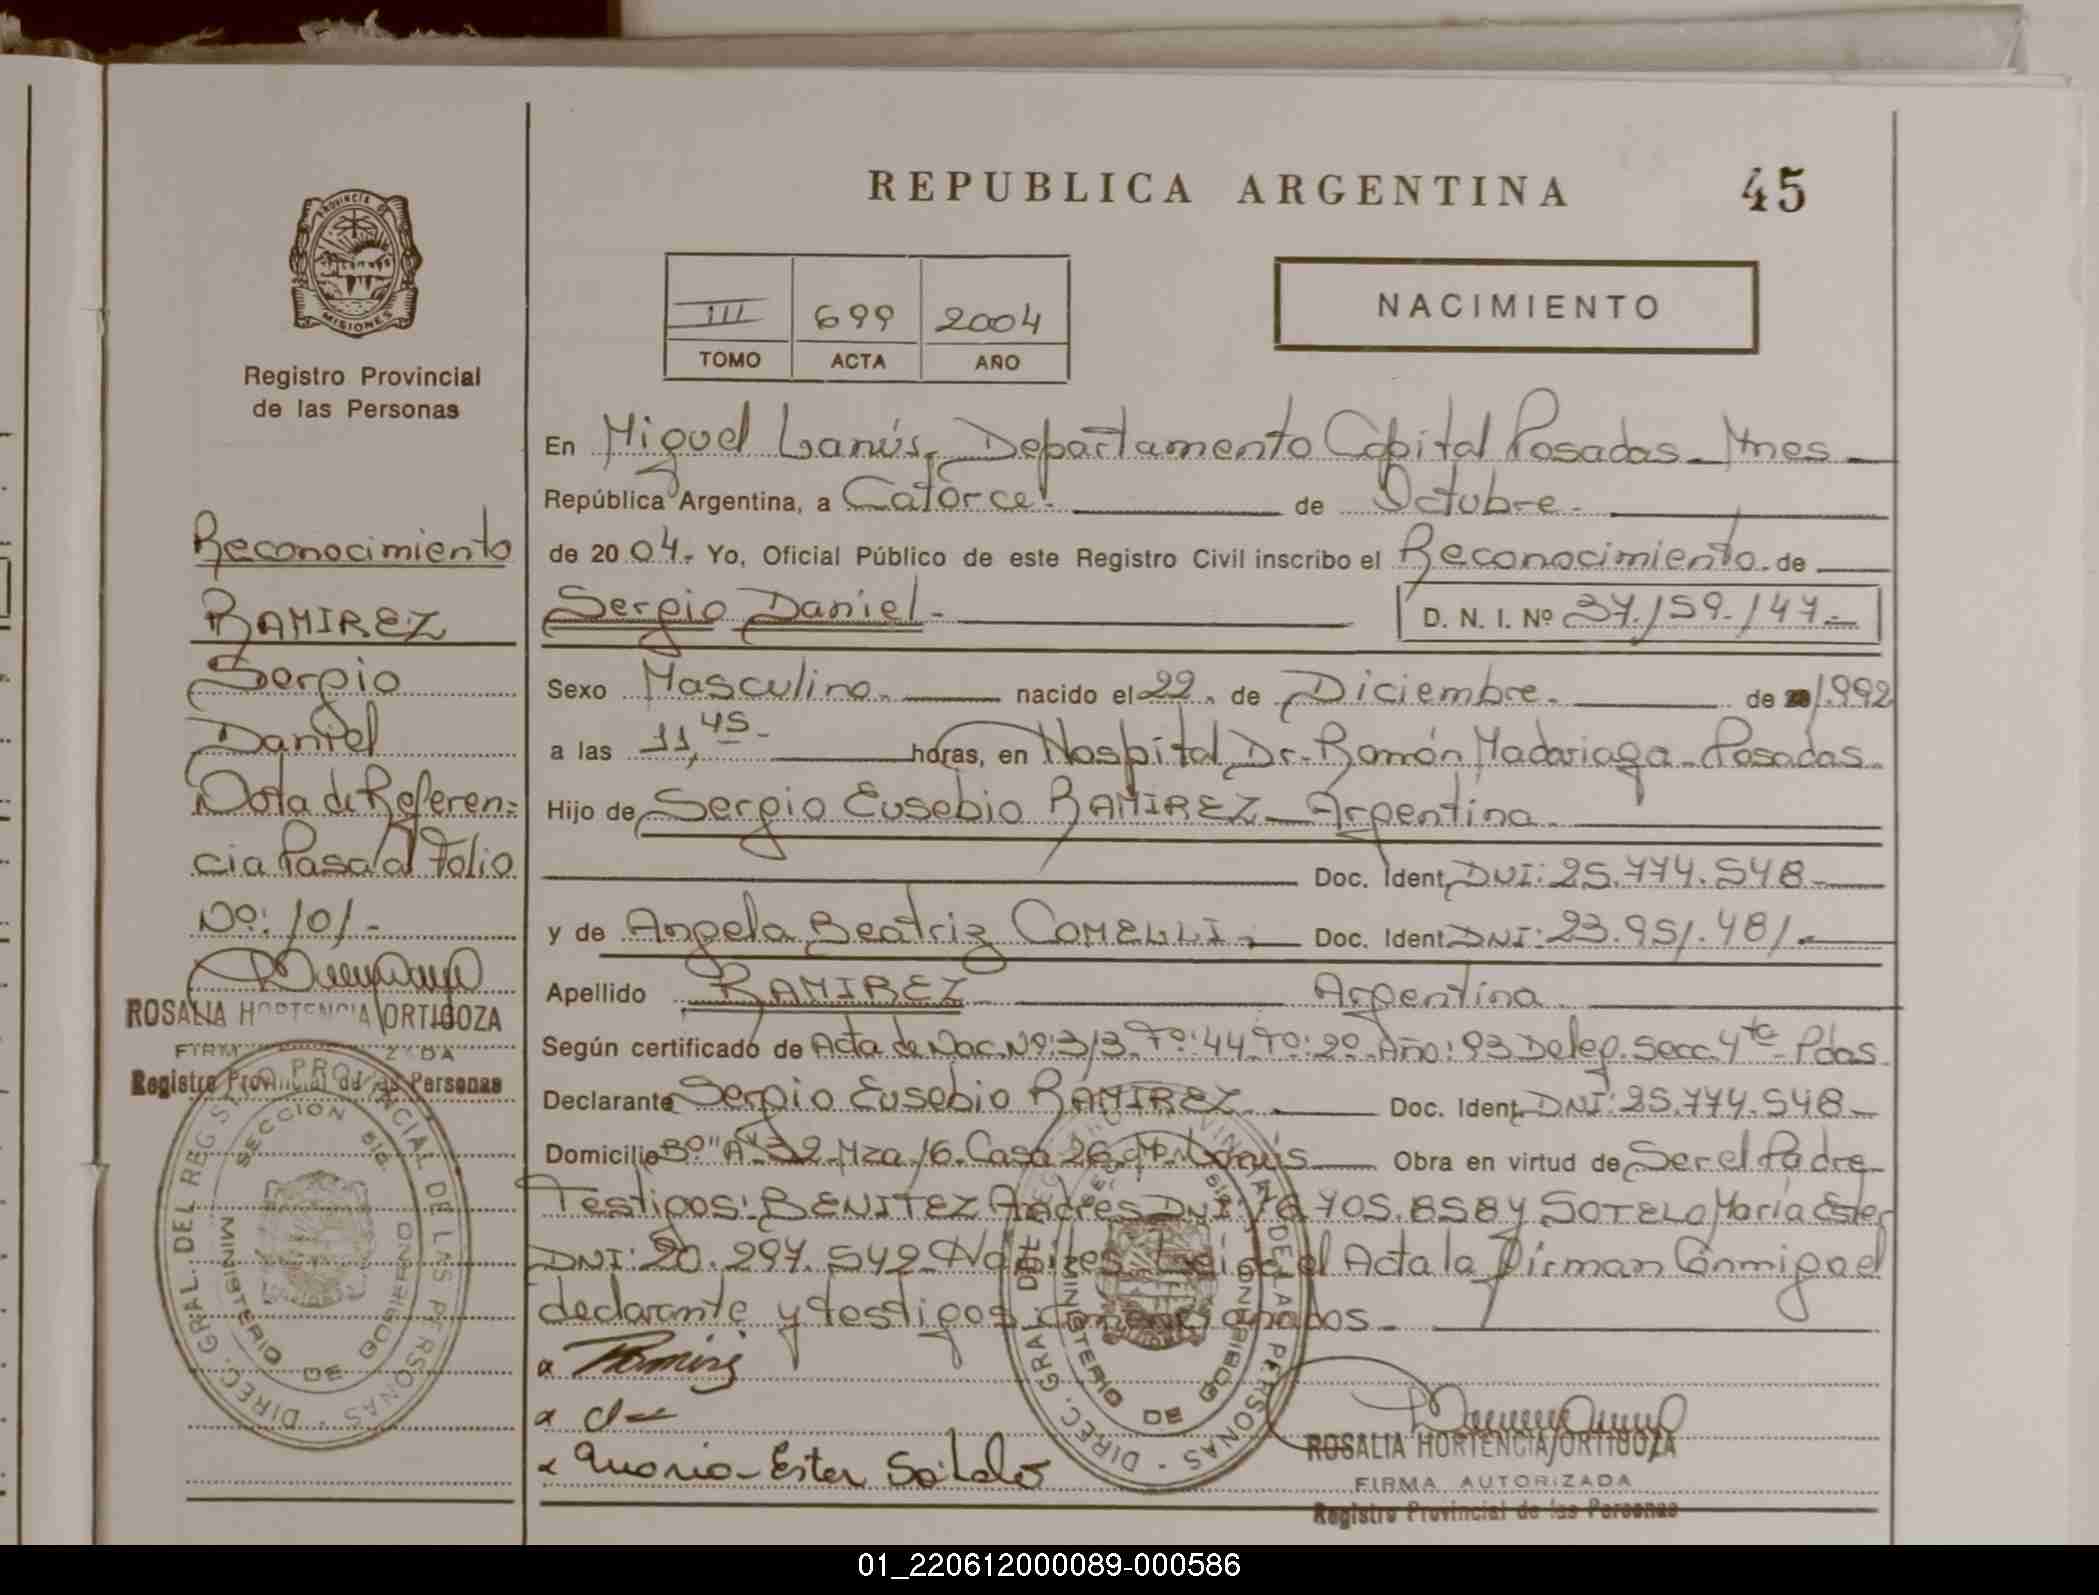 REPUBLICA ARGENTINA
45
PROVINCIA DE
MISIONES
Registro Provincial
de las Personas
III 699 2004
TOMO ACTA AÑO
NACIMIENTO
Reconocimiento
RAMIREZ
Sergio
Daniel
Nota de Referen=
cia Pasa al Folio
Nº: 101-
ROSALIA HORTENCIA ORTIGOZA
Registro Provincial de las Personas
DIREC. GRAL. DEL REGISTRO PROVINCIAL DE LAS PERSONAS
SECCION
MINISTERIO DE GOBIERNO
En Miguel Lanús, Departamento Capital Posadas - Mnes -
República Argentina, a Catorce. de Octubre.
de 2004.- Yo, Oficial Público de este Registro Civil inscribo el Reconocimiento. de
Sergio Daniel - D. N. I. Nº 37.159.147-
Sexo Masculino. nacido el 22. de Diciembre. de 1.992
a las 11,45- horas, en Hospital Dr. Ramón Madariaga - Posadas.
Hijo de Sergio Eusebio RAMIREZ - Argentina.
Doc. Ident. DNI: 25.774.548-
y de Angela Beatriz COMELLI. Doc. Ident. DNI: 23.951.481.
Apellido RAMIREZ Argentina.
Según certificado de Acta de Nac. Nº: 313 - Fº: 44 Tº: 2º Año: 93 Deleg. Secc. 4ta Pdas
Declarante Sergio Eusebio RAMIREZ. Doc. Ident. DNI: 25.774.548-
Domicilio Bº "A" 32 Mza. 16. Casa 26. M. Lanús Obra en virtud de Ser el Padre
Testigos: BENITEZ Andres DNI: 705.858 y SOTELO María Ester
DNI: 20.297.542 Leida el Acta la firman Conmigo el
declarante y testigos
Maria Ester Sotelo
DIREC. GRAL. DEL PROVINCIAL DE LAS PERSONAS
MINISTERIO DE GOBIERNO
ROSALIA HORTENCIA ORTIGOZA
FIRMA AUTORIZADA
Registro Provincial de las Personas
01_220612000089-000586